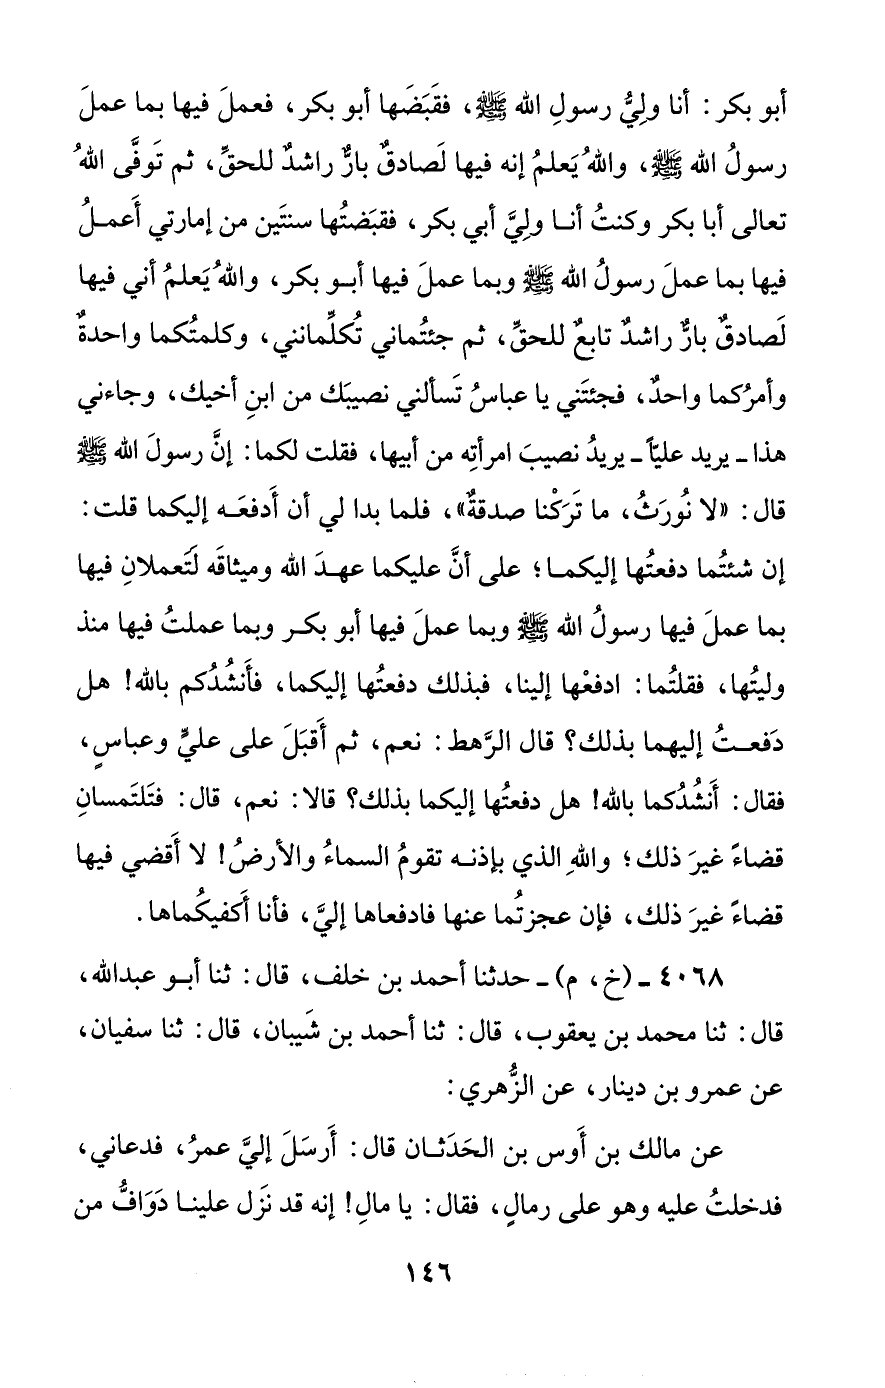 أبو بكر: أنا ولِيُّ رسولِ الله ﷺ، فقَبَضَها أبو بكر، فعملَ فيها بما عملَ
رسولُ الله ﷺ، واللهُ يَعلمُ إنه فيها لَصادقٌ بارٌّ راشدٌ للحقِّ، ثم تَوفَّى اللهُ
تعالى أبا بكر وكنتُ أنـا ولِيَّ أبي بكر، فقبَضتُها سنتَين من إمارتي أَعمـلُ
فيها بما عملَ رسولُ الله ﷺ وبما عملَ فيها أبـو بكر، واللهُ يَعلمُ أني فيها
لَصادقٌ بارٌّ راشدٌ تابعٌ للحقِّ، ثم جئتُماني تُكلِّمانني، وكلمتُكما واحدةٌ
وأمرُكما واحدٌ، فجئتَني يا عباسُ تَسألني نصيبَك من ابنِ أخيك، وجاءني
هذا ـ يريد عليّاً ـ يريدُ نصيبَ امرأتِه من أبيها، فقلت لكما: إنَّ رسولَ الله ﷺ
قال: «لا نُورَثُ، ما تَرَكْنا صدقةٌ»، فلما بدا لي أن أَدفعَـه إليكما قلت:
إن شئتُما دفعتُها إليكمـا؛ على أنَّ عليكما عهـدَ الله وميثاقَه لَتَعملانِ فيها
بما عملَ فيها رسولُ الله ﷺ وبما عملَ فيها أبو بكـر وبما عملتُ فيها منذ
وليتُها، فقلتُما: ادفعْها إلينا، فبذلك دفعتُها إليكما، فأَنشُدُكم بالله! هل
دَفعـتُ إليهما بذلك؟ قال الرَّهط: نعم، ثم أَقبَلَ على عليٍّ وعباسٍ،
فقال: أَنشُدُكما بالله! هل دفعتُها إليكما بذلك؟ قالا: نعم، قال: فتَلتَمسانِ
قضاءً غيرَ ذلك؛ واللهِ الذي بإذنـه تقومُ السماءُ والأرضُ! لا أَقضي فيها
قضاءً غيرَ ذلك، فإن عجزتُما عنها فادفعاها إليَّ، فأنا أَكفيكُماها.
٤٠٦٨ ـ (خ، م) ـ حدثنا أحمد بن خلف، قال: ثنا أبـو عبدالله،
قال: ثنا محمد بن يعقوب، قال: ثنا أحمد بن شَيبان، قال: ثنا سفيان،
عن عمرو بن دينار، عن الزُّهري:
عن مالك بن أَوس بن الحَدَثـان قال: أَرسَلَ إليَّ عمرُ، فدعاني،
فدخلتُ عليه وهو على رمالٍ، فقال: يا مالِ! إنه قد نَزَل علينـا دَوَافُّ من
١٤٦